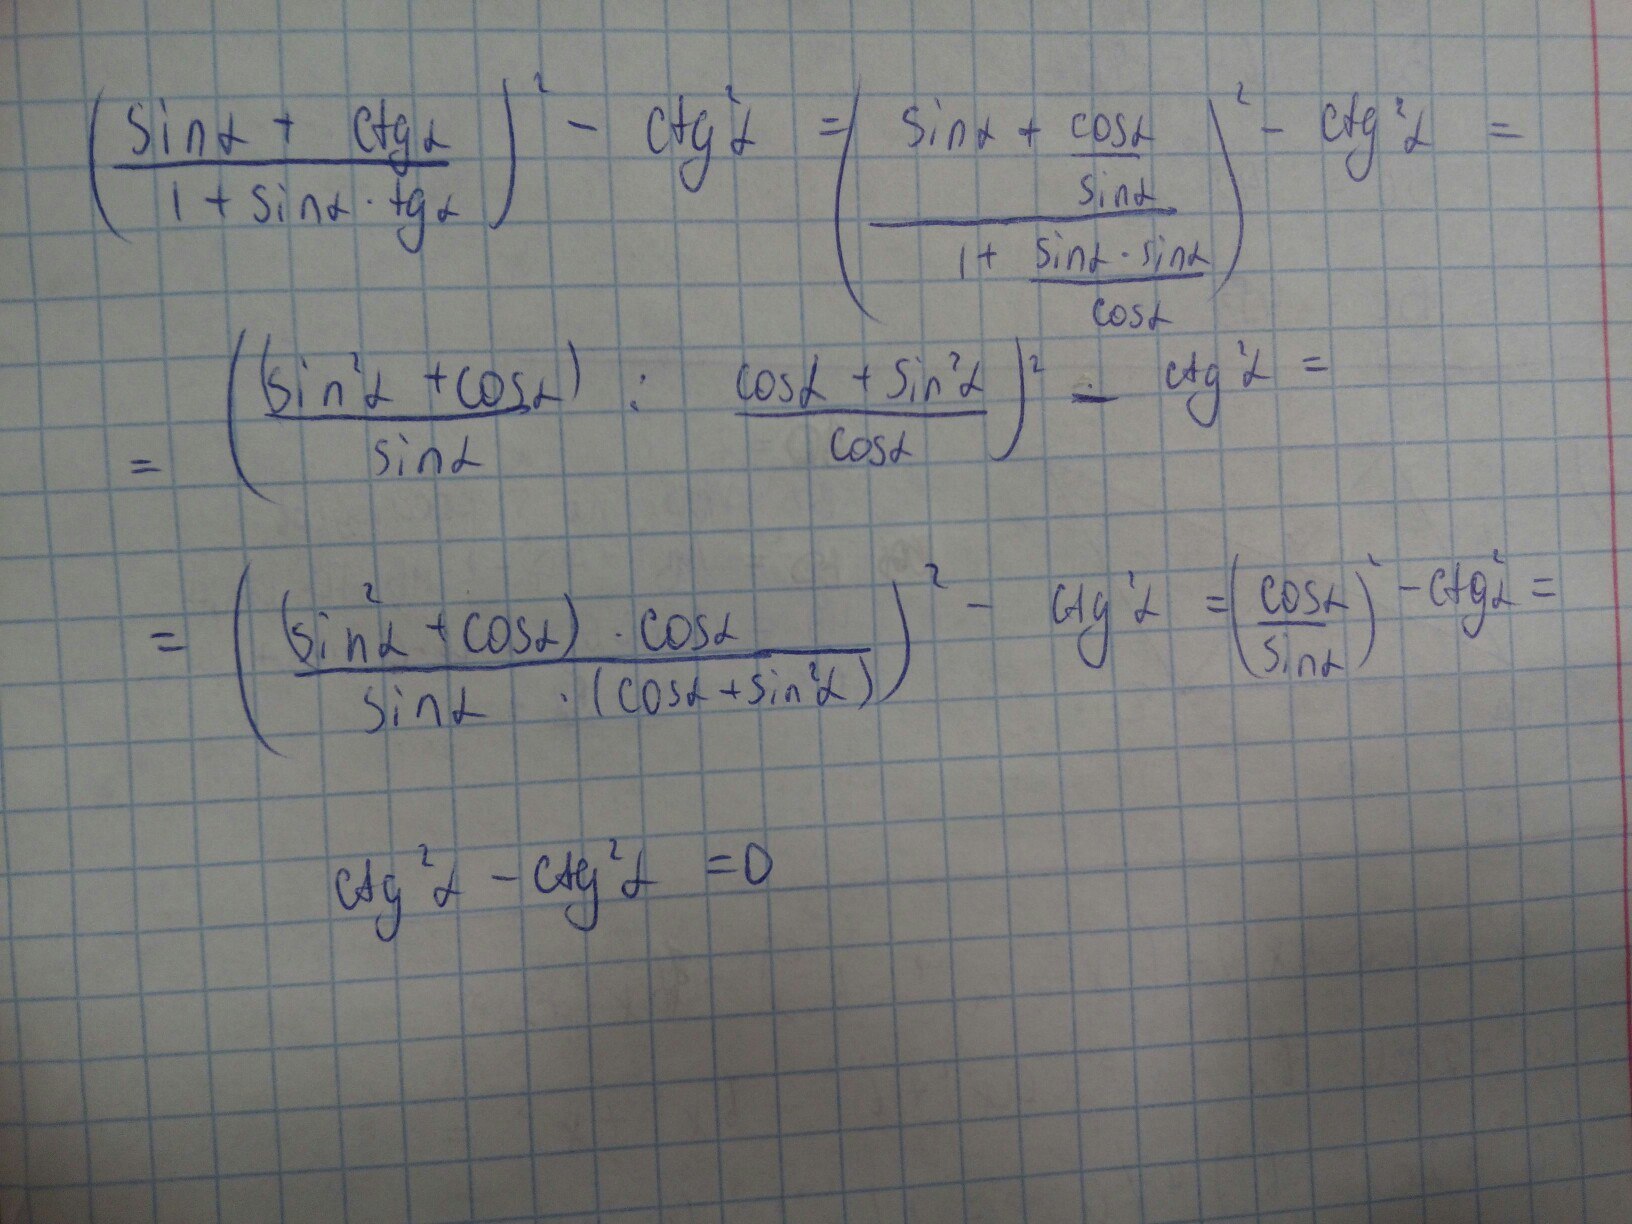 ((sinα + ctgα)/(1 + sinα · tgα))² - ctg²α = ((sinα + cosα/sinα)/(1 + (sinα · sinα)/cosα))² - ctg²α =
= ((sin²α + cosα)/sinα : (cosα + sin²α)/cosα)² - ctg²α =
= (((sin²α + cosα) · cosα)/(sinα · (cosα + sin²α)))² - ctg²α = (cosα/sinα)² - ctg²α =
ctg²α - ctg²α = 0